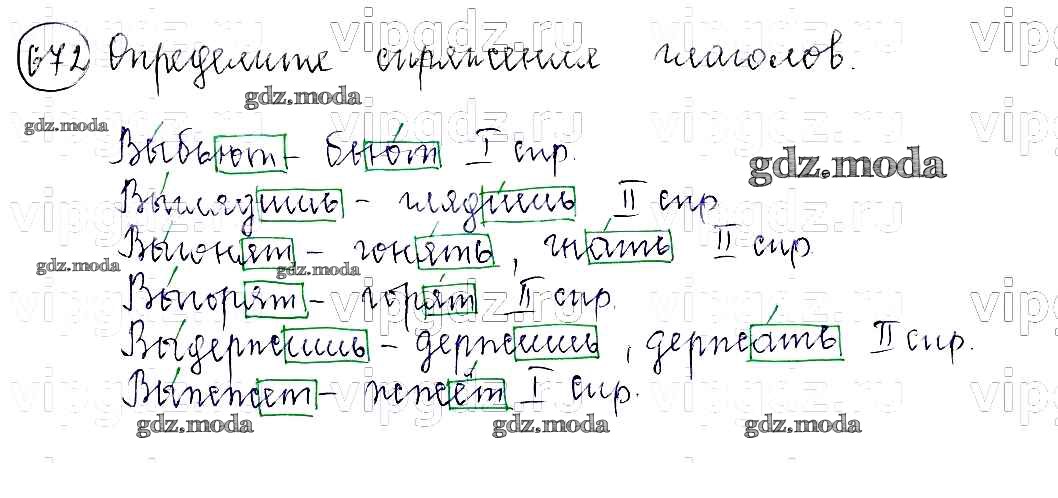 672 Определите спряжения глаголов.
Выбьют – бьют I спр.
Выглядишь – глядишь II спр
Выгонят – гонять, гнать II спр.
Выгорят – горят II спр.
Выдержишь – держишь, держать II спр.
Выжжет – жжёт I спр.
vipgdz.ru
gdz.moda